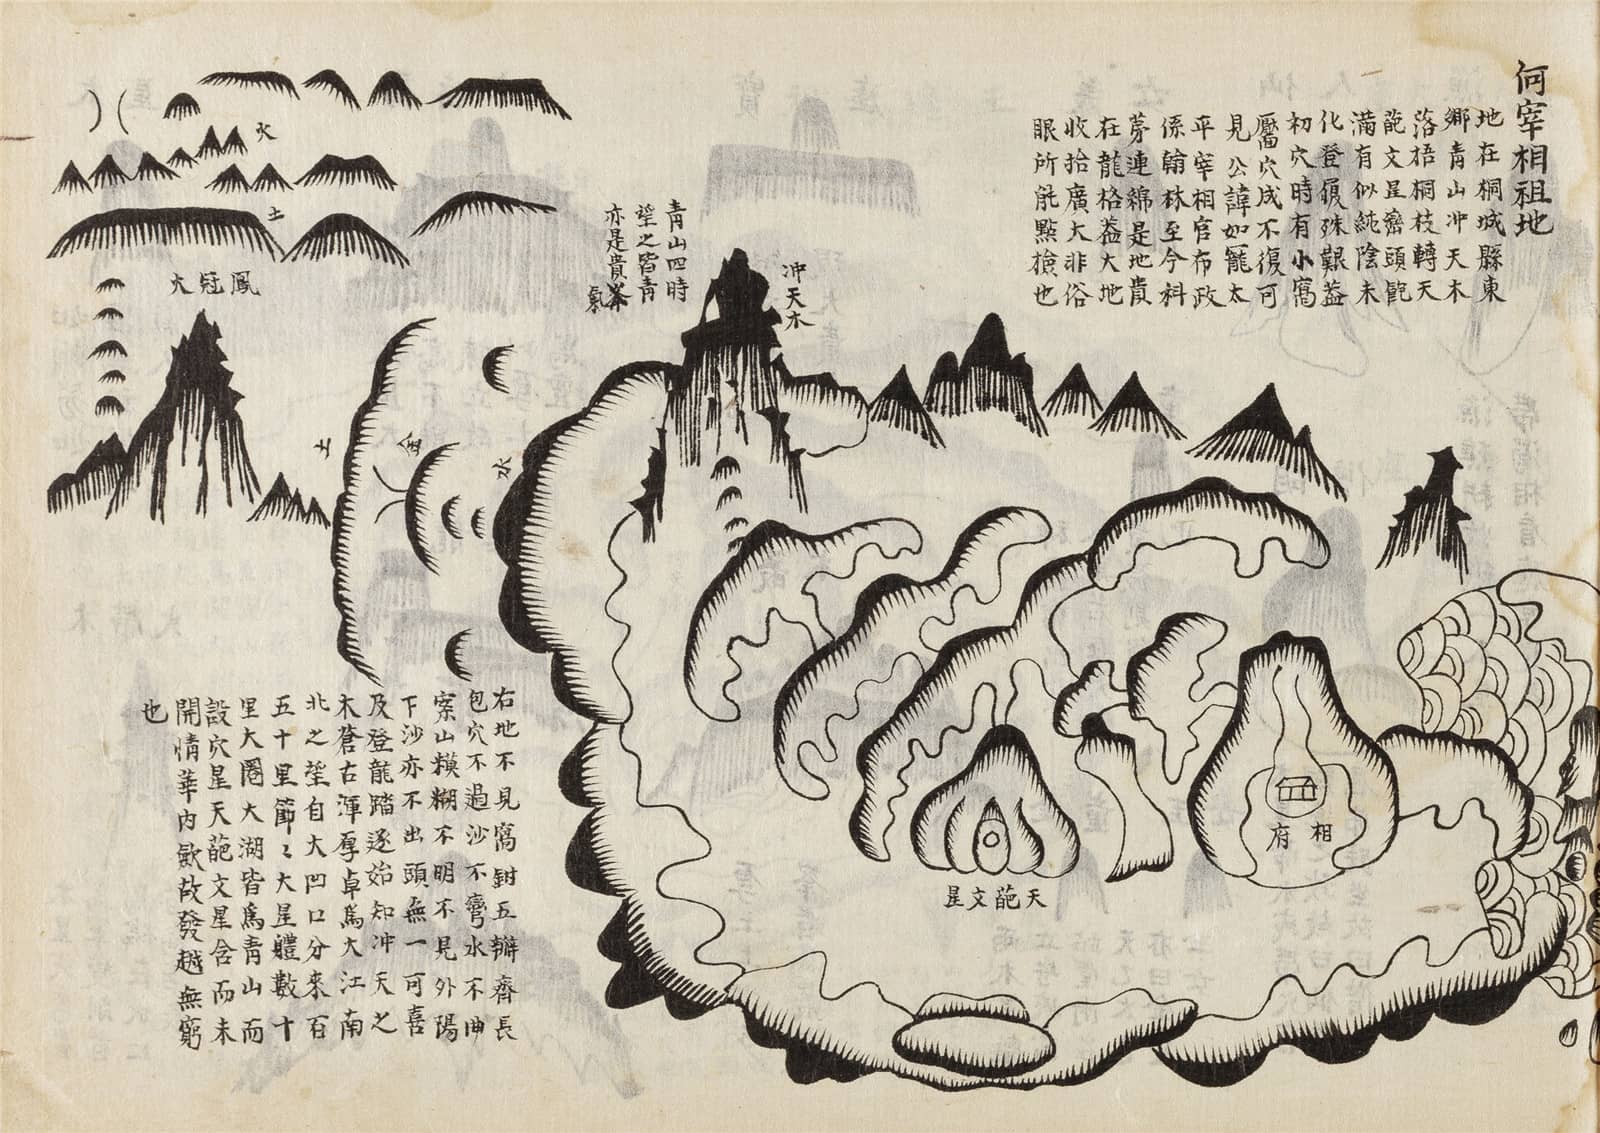 何宰相祖地
地在桐城縣東
鄉青山冲天木
落梧桐枝轉天
葩文星齊頭瓟
滿有似純陰未
化登履殊艱蓋
初穴時有小窩
靨穴成不復可
見公諱如寵太
平宰相官布政
係翰林至今科
苐連綿是地貴
在龍格蓋大地
收拾廣大非俗
眼所能點撿也
冲天木
青山四時
望之皆青
亦是貴峯
氣
火
土
大冠鳳
土
金
水
相府
天葩文星
右地不見窩鉗五辧齊長
包穴不過沙不彎水不曲
案山糢糊不明不見外陽
下沙亦不出頭無一可喜
及登龍踏遂始知冲天之
木蒼古渾厚卓爲大江南
北之望自大凹口分來百
五十里節〻大星體數十
里大圏大湖皆爲青山而
設穴星天葩文星含而未
開情華內歛故發越無窮
也